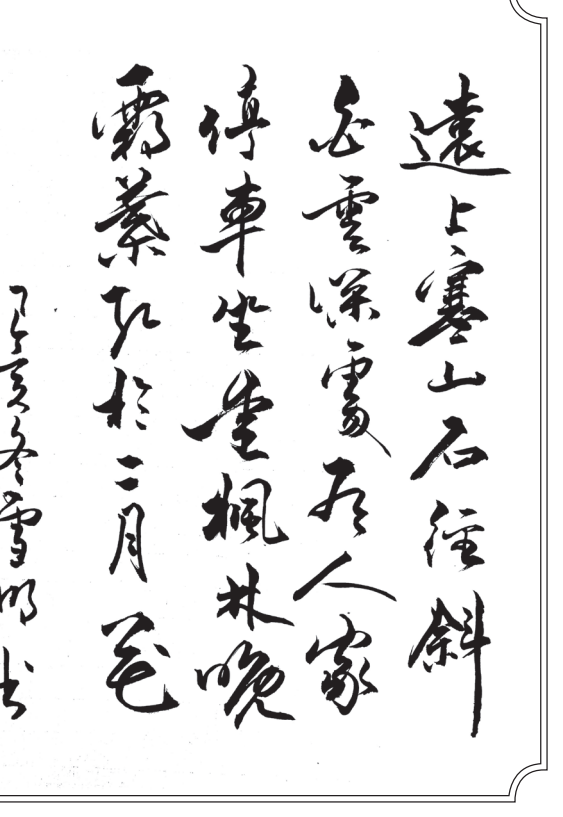 遠上寒山石徑斜
白雲深處有人家
停車坐愛楓林晚
霜葉紅於二月花
丁亥冬雪明书